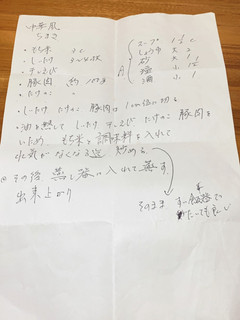 中華風
ちまき
・もち米 2c
・しいたけ 3〜4枚
・干しえび
・豚肉 約100g
・たけのこ
A
スープ 1 1/2 c
しょうゆ 大2
砂 大
塩 小 1/2
酒 小1
・しいたけ たけのこ 豚肉は1cm位に切る
・油を熱して しいたけ 干しえび たけのこ 豚肉を
いため もち米と調味料を入れて
水気がなくなる迄 炒める
その後 蒸し器に入れて蒸す
出来上がり
そのまま
炊いても良い